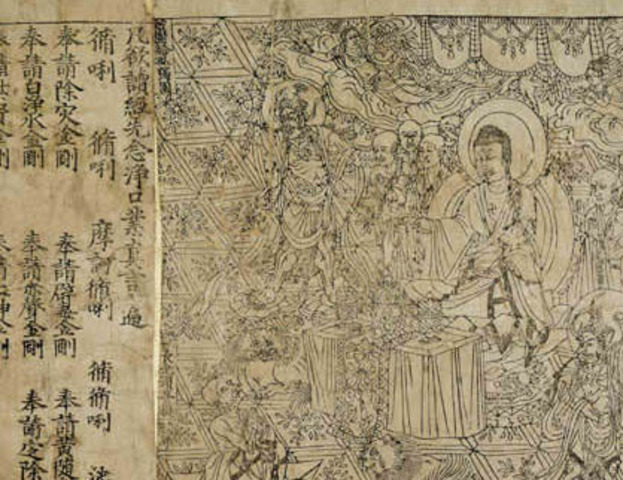 凡欲讀經先念淨口業真言一遍
脩唎 脩唎 摩訶脩唎 脩脩唎
奉請除灾金剛 奉請辟毒金剛 奉請黄随
奉請白淨水金剛 奉請赤聲金剛 奉請定除